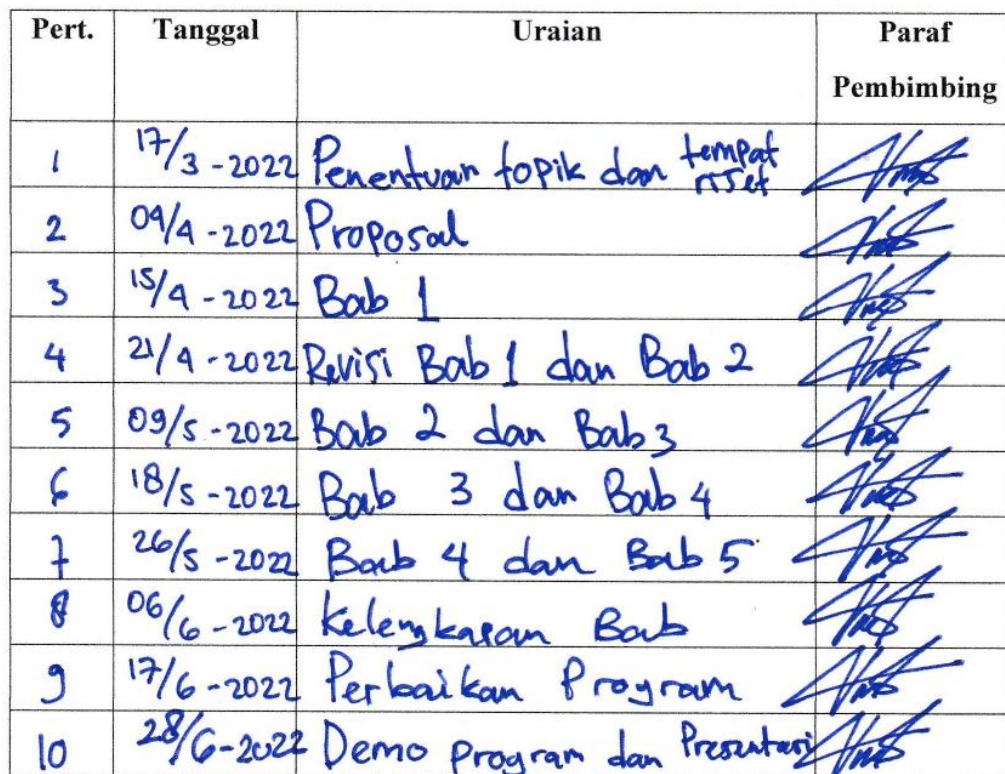 Pert. Tanggal Uraian Paraf Pembimbing
1 17/3-2022 Penentuan topik dan tempat riset
2 04/4-2022 Proposal
3 15/4-2022 Bab 1
4 21/4-2022 Revisi Bab 1 dan Bab 2
5 09/5-2022 Bab 2 dan Bab 3
6 18/5-2022 Bab 3 dan Bab 4
7 26/5-2022 Bab 4 dan Bab 5
8 06/6-2022 Kelengkapan Bab
9 17/6-2022 Perbaikan Program
10 28/6-2022 Demo program dan Presentasi